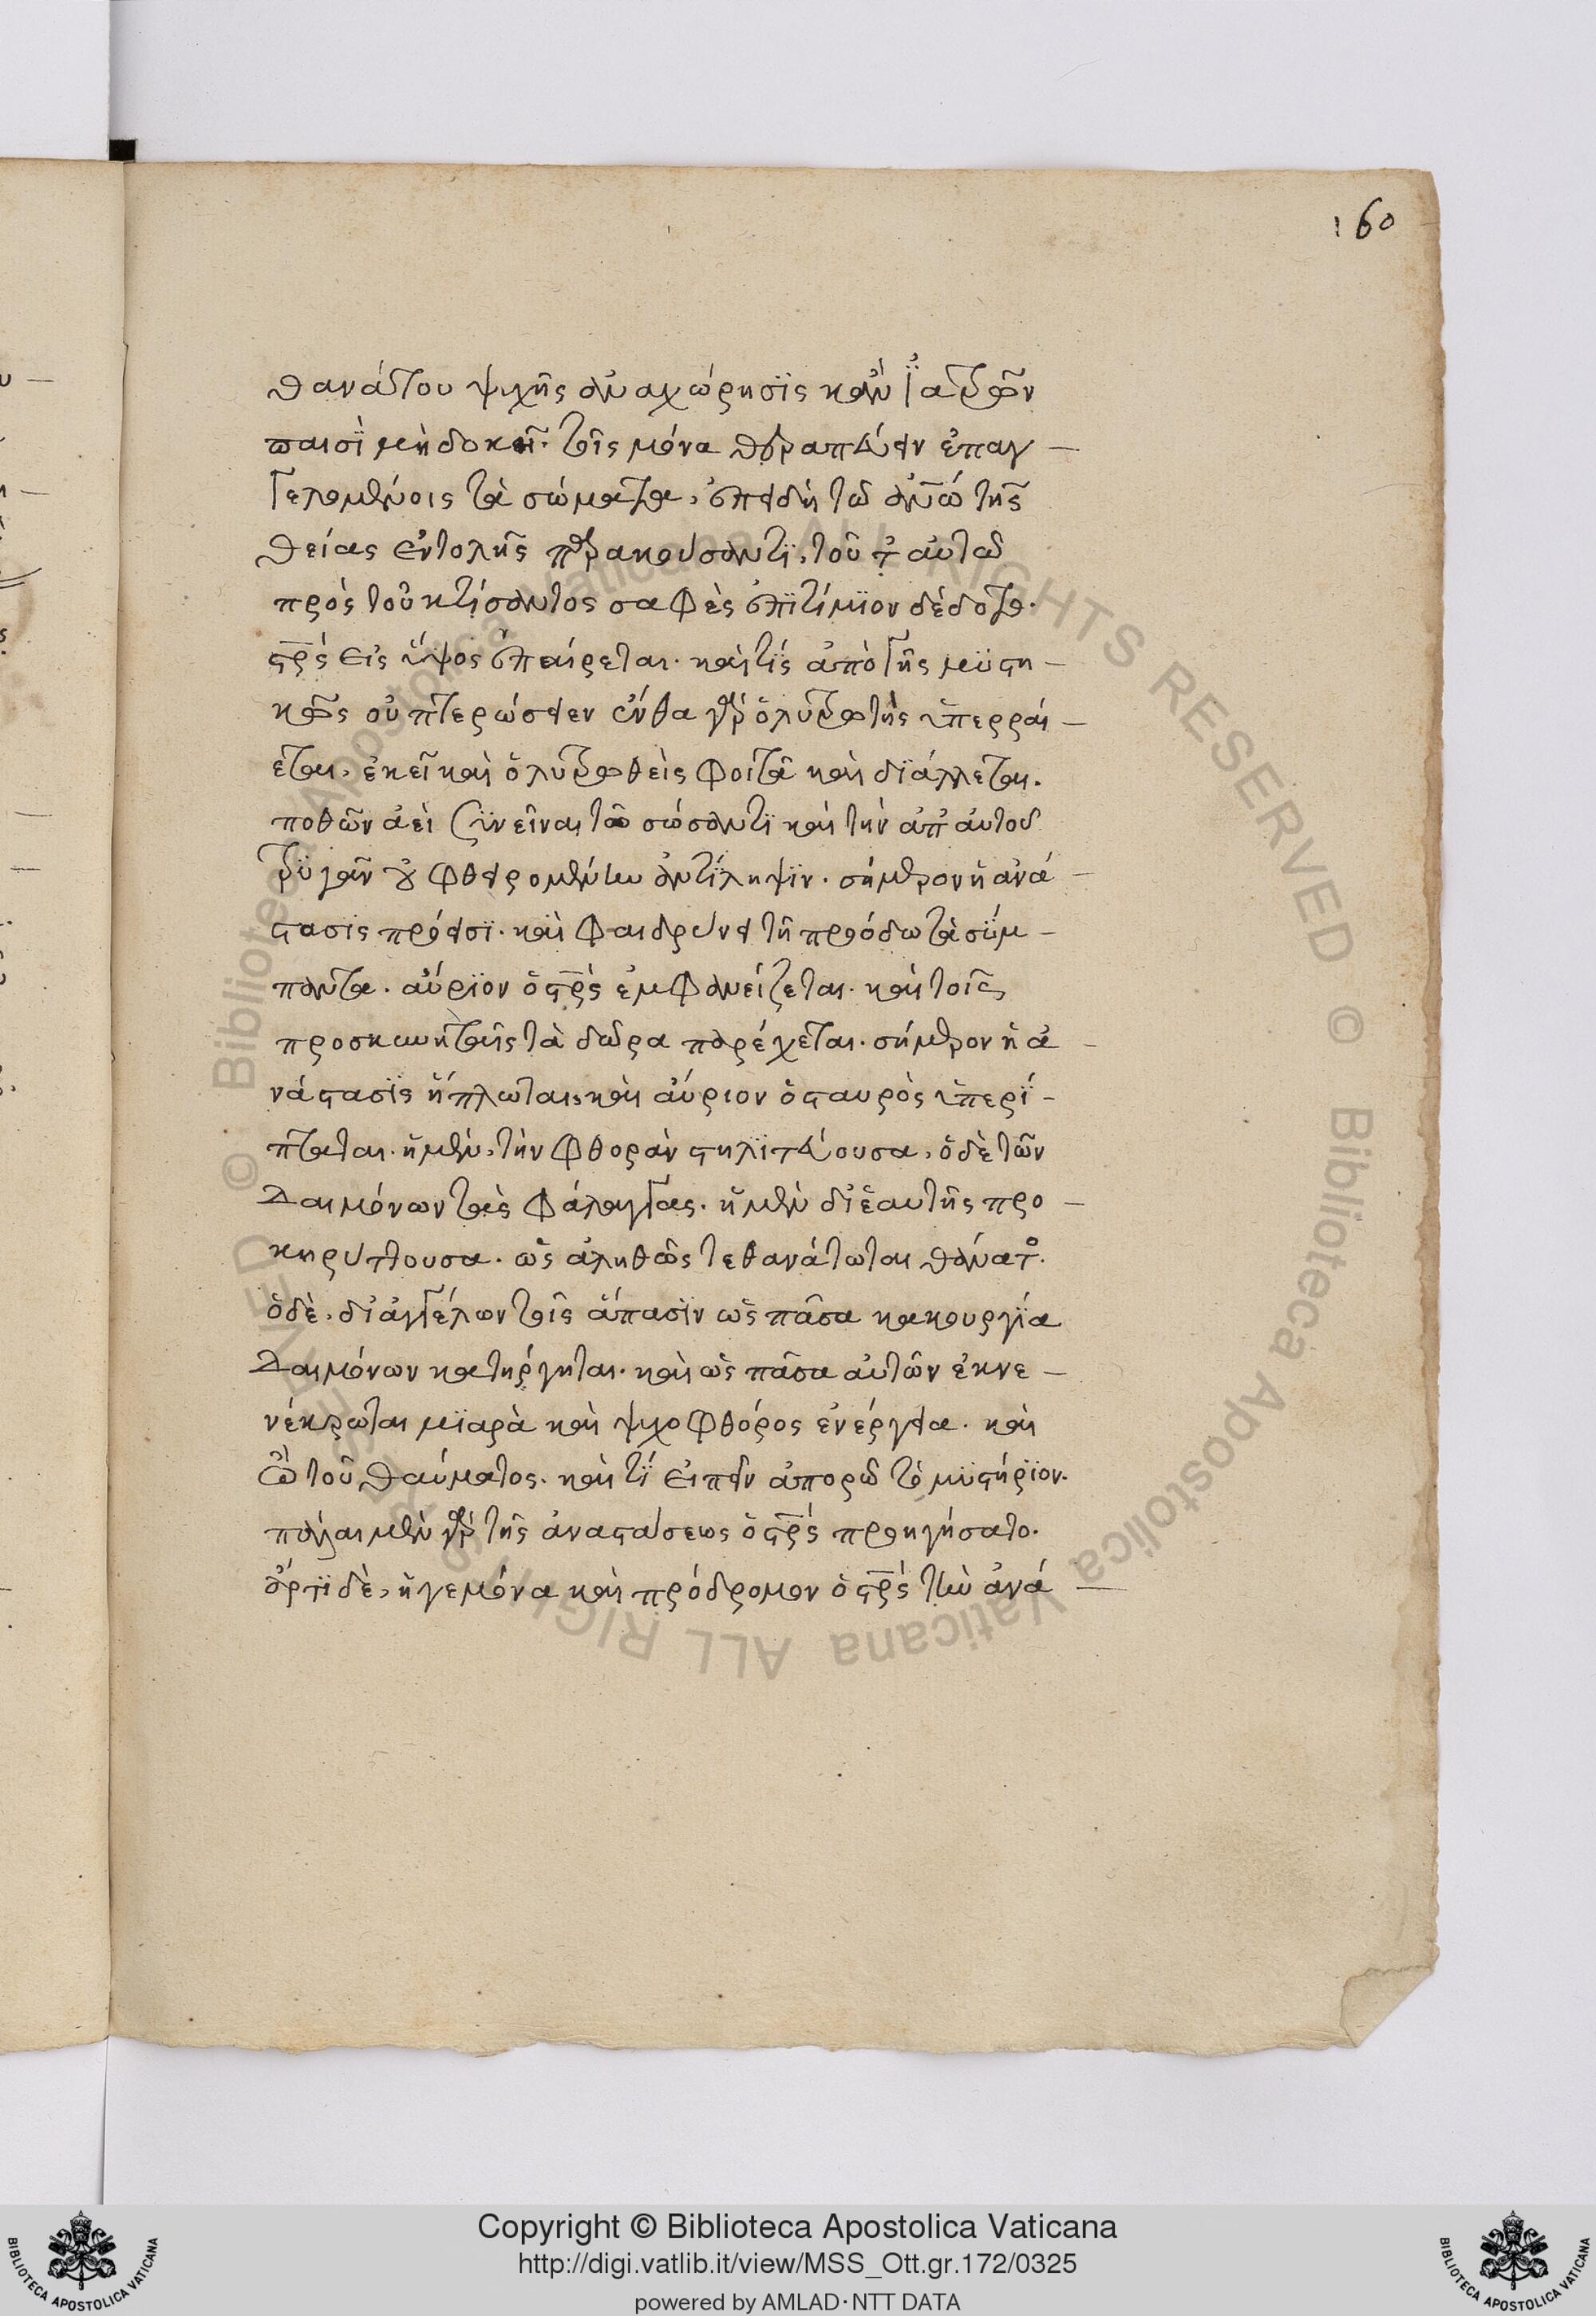 160
θανάτου ψυχῆς ἀναχώρησϊς κἂν ϊατρῶν
παισὶ μὴ δοκῆ· τοῖς μόνα θεραπεύειν ἐπαγ
γελομένοις τὰ σώματα, ἐπειδὴ τῶ ἀνῶ τῆς
θείας ἐντολῆς παρακούσαντϊ, τοῦτ αὐτῶ
πρὸς τοῦ κτίσαντος σαφὲς ἐπϊτίμϊον δέδοται·
στρς εἰς ὕψος ἐπαίρεται· καὶ τίς ἀπὸ γῆς μϋστη
κῶς οὐ πτερώσειεν ἔνθα γὰρ ὁ λϋτρωτὴς ὑπερραί
ρεται, ἐκεῖ καὶ ὁ λϋτρωθεὶς φοιτᾶ καὶ δϊάλλεται·
ποθῶν ἀεὶ ζῆν εἶναι τῶ σώσαντϊ καὶ τὴν ἀπ αὐτοῦ
τρϋγᾶν οὐ φθειρομένην ἀντίληψϊν· σήμερον ἡ ἀνά
στασϊς πρόεισϊ· καὶ φαιδρύνει τῆ προόδω τὰ σύμ
παντα· αὔρϊον ὁ στρς ἐμφανείζεται· καὶ τοῖς
προσκυνηταῖς τὰ δῶρα παρέχεται· σήμερον ἡ ἀ
νάστασϊς ἥπλωται, καὶ αὔριον ὁ σταυρὸς ὑπερί
πταται· ἡ μὲν, τὴν φθορὰν στηλϊτεύουσα, ὁ δὲ τῶν
Δαιμόνων τὰς φάλαγγας· ἡ μὲν δϊ ἑαυτῆς προ
κηρύττουσα· ὡς ἀληθῶς τεθανάτωται θάνατο·
ὁ δὲ, δϊ ἀγγέλων τοῖς ἅπασϊν ὡς πᾶσα κακουργϊα
Δαιμόνων κατήργηται· καὶ ὡς πᾶσα αὐτῶν ἐκνε
νέκρωται μϊαρὰ καὶ ψυχοφθόρος ἐνέργεια· καὶ
ὢ τοῦ θαύματος· καὶ τί εἰπεῖν ἀπορῶ τὸ μϋστήρϊον·
πάλαι μὲν γὰρ τῆς ἀναστάσεως ὁ στρς προηγήσατο·
ἄρτϊ δὲ, ἡγεμόνα καὶ πρόδρομον ὁ στρς τὴν ἀνά
Copyright © Biblioteca Apostolica Vaticana
http://digi.vatlib.it/view/MSS_Ott.gr.172/0325
powered by AMLAD·NTT DATA